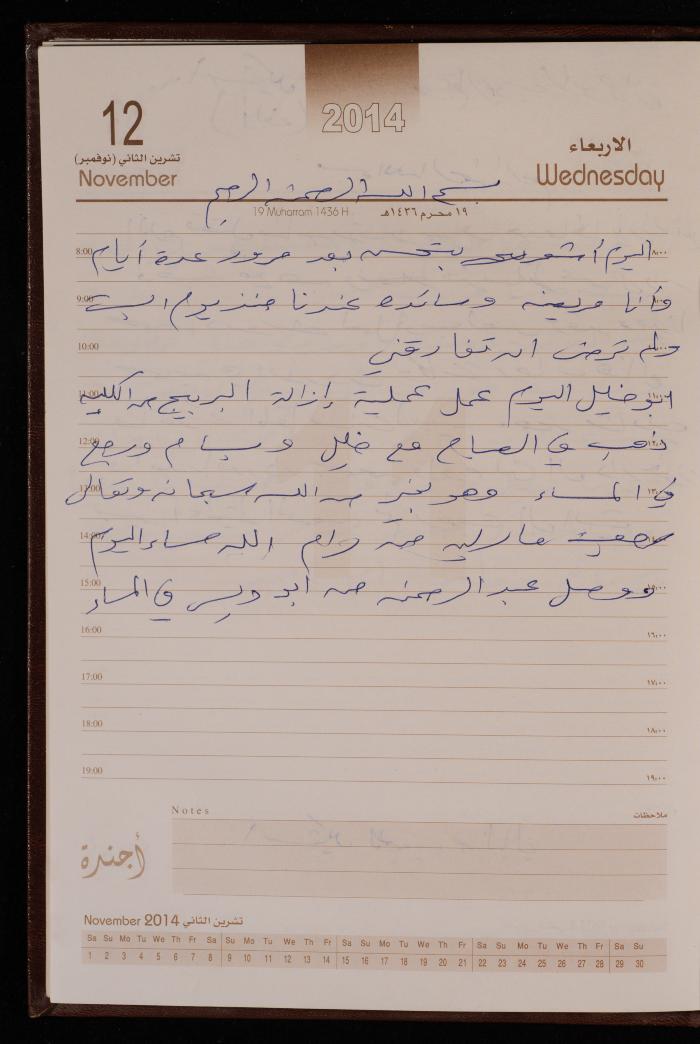 12
تشرين الثاني (نوفمبر)
November
2014
الاربعاء
Wednesday
بسم الله الرحمن الرحيم
19 Muharram 1436 H
١٩ محرم ١٤٣٦هـ
8:00 اليوم أشعر بتحسن بعد مرور عدة أيام ٨:٠٠
9:00 وأنا مريضه وسائده عندنا منذ يوم السبت
10:00 ولم ترضى ان تفارقني
11:00 ابو خليل اليوم عمل عملية إزالة البربيج من الكليه
12:00 ذهب في الصباح مع خليل وبسام ورجع
13:00 في المساء وهو بخير من الله سبحانه وتعالى
14:00 مارلين من رام الله مساء اليوم
15:00 ووصل عبد الرحمن من ابو في المساء
16:00 ١٦:٠٠
17:00 ١٧:٠٠
18:00 ١٨:٠٠
19:00 ١٩:٠٠
Notes ملاحظات
أجندة
November 2014 تشرين الثاني
Sa Su Mo Tu We Th Fr Sa Su Mo Tu We Th Fr Sa Su Mo Tu We Th Fr Sa Su Mo Tu We Th Fr Sa Su
1 2 3 4 5 6 7 8 9 10 11 12 13 14 15 16 17 18 19 20 21 22 23 24 25 26 27 28 29 30